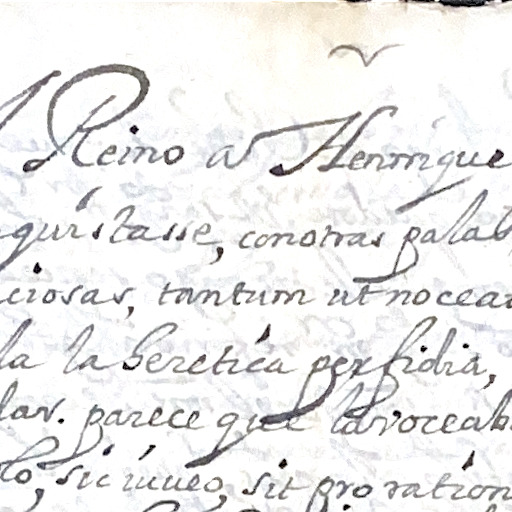 Reino a Henrrique
quistasse, con otras palab
ciosas, tantum ut nocear
la la heretica perfidia,
las. parece que la voceab
lo, sic iuueo, sit pro ration